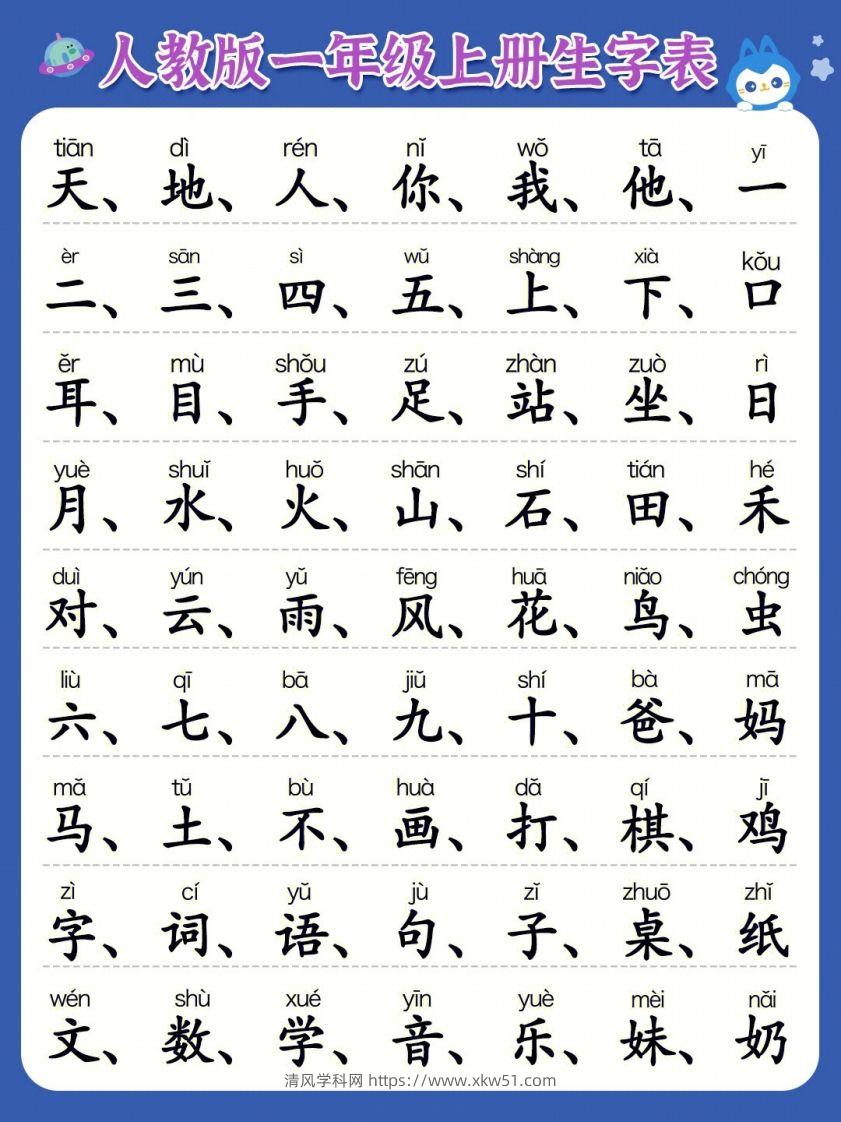 人教版一年级上册生字表
tiān dì rén nǐ wǒ tā yī
天、地、人、你、我、他、一
èr sān sì wǔ shàng xià kǒu
二、三、四、五、上、下、口
ěr mù shǒu zú zhàn zuò rì
耳、目、手、足、站、坐、日
yuè shuǐ huǒ shān shí tián hé
月、水、火、山、石、田、禾
duì yún yǔ fēng huā niǎo chóng
对、云、雨、风、花、鸟、虫
liù qī bā jiǔ shí bà mā
六、七、八、九、十、爸、妈
mǎ tǔ bù huà dǎ qí jī
马、土、不、画、打、棋、鸡
zì cí yǔ jù zǐ zhuō zhǐ
字、词、语、句、子、桌、纸
wén shù xué yīn yuè mèi nǎi
文、数、学、音、乐、妹、奶
清风学科网 https://www.xkw51.com